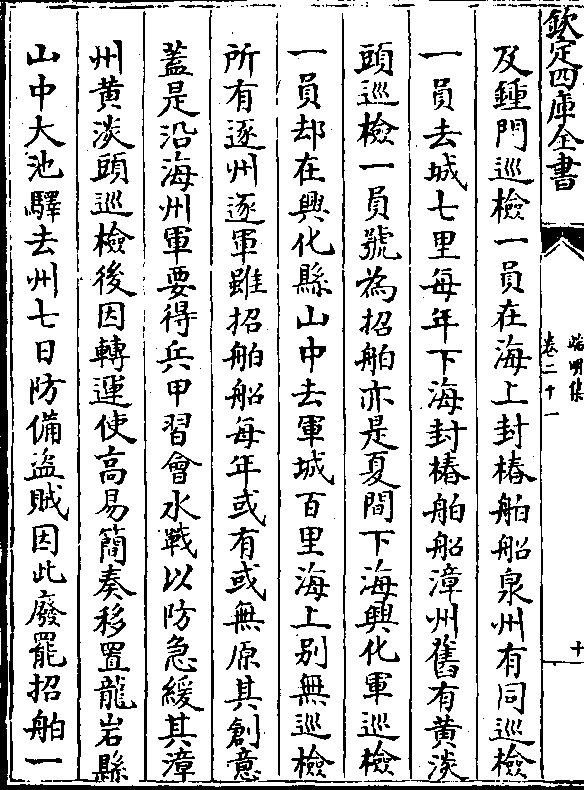 欽定四庫全書
端明集
卷二十一
十
及鍾門巡檢一員在海上封樁舶船泉州有同巡檢
一員去城七里每年下海封樁舶船漳州舊有黄淡
頭巡檢一員號為招舶亦是夏間下海興化軍巡檢
一員却在興化縣山中去軍城百里海上别無巡檢
所有逐州逐軍雖招舶船每年或有或無原其創意
蓋是沿海州軍要得兵甲習會水戰以防急緩其漳
州黄淡頭巡檢後因轉運使高易簡奏移置龍岩縣
山中大池驛去州七日防備盗賊因此廢罷招舶一